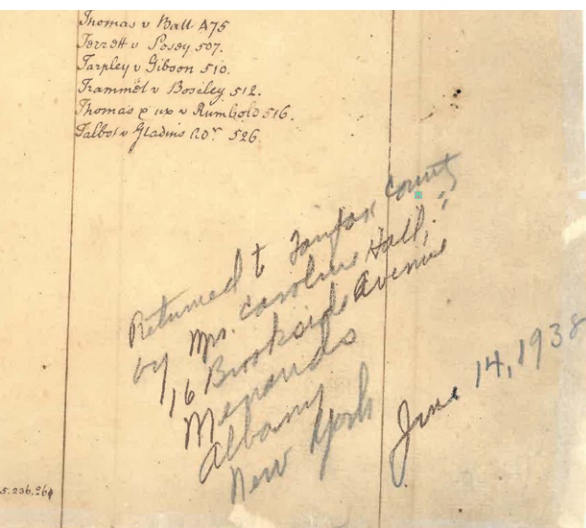 Thomas v Ball 475
Terrett v Posey 507.
Tarpley v Gibson 510.
Trammel v Boseley 512.
Thomas & ux v Rumbold 516.
Talbot v Gladins 526.
Returned to Fairfax County
by Mrs. Caroline Hall,
16 Brookside Avenue
Menands
Albany
New York
June 14, 1938
5.236.264